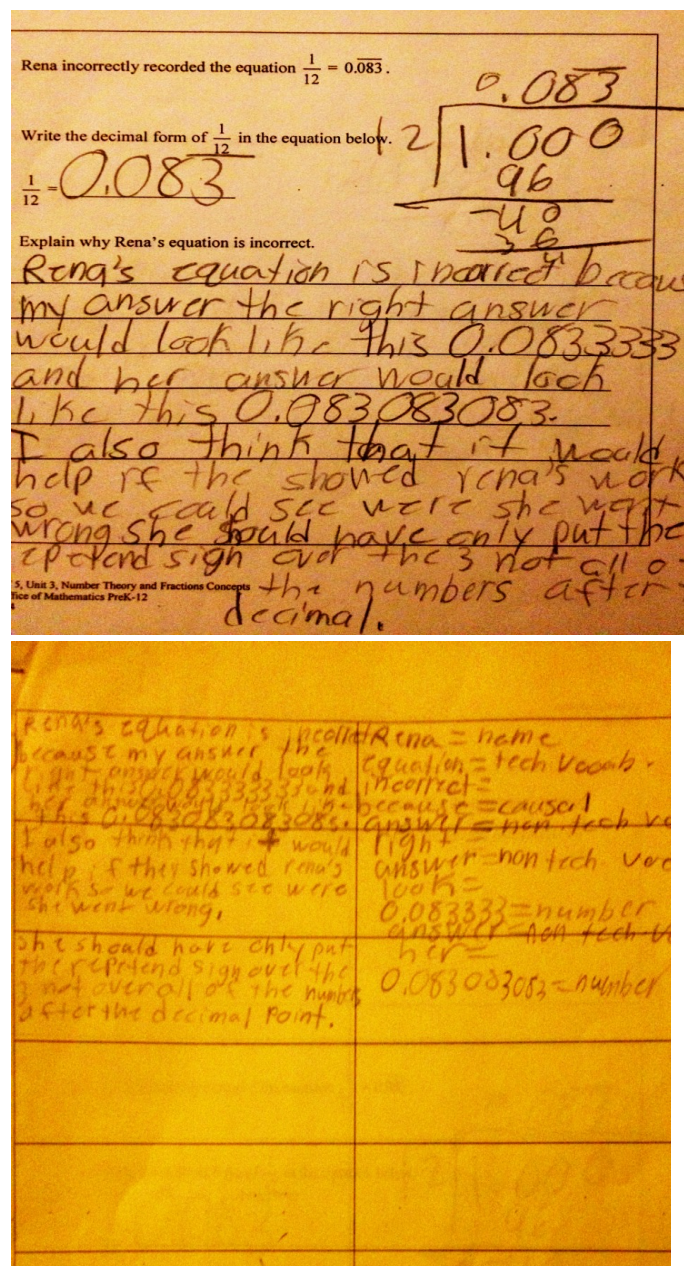 Rena incorrectly recorded the equation 1/12 = 0.0̅8̅3̅.
0.083̅
12 1.000
96
-40
36
4
Write the decimal form of 1/12 in the equation below.
1/12 = 0.083̅
Explain why Rena's equation is incorrect.
Rena's equation is incorrect becaus
my answer the right answer
would look like this 0.0833333
and her answer would look
like this 0.083083083.
I also think that it would
help if the showed rena's work
so we could see were she went
wrong she should have only put the
repetend sign over the 3 not all o
the numbers after
decimal.
5, Unit 3, Number Theory and Fractions Concepts
fice of Mathematics PreK-12
Rena's equation is incorrect
because my answer the
right answer would look
like this 0.083333333 and
her answer would look like
this 0.083083083083.
I also think that it would
help if they showed rena's
work so we could see were
she went wrong.
She should have only put
the repetend sign over the
3 not over all of the numbers
after the decimal point.
Rena = name
equation = tech vocab.
incorrect =
because = causal
answer = non tech vo
right =
answer = non tech voc
look =
0.083333 = number
answer = non tech v
her =
0.083083083 = number